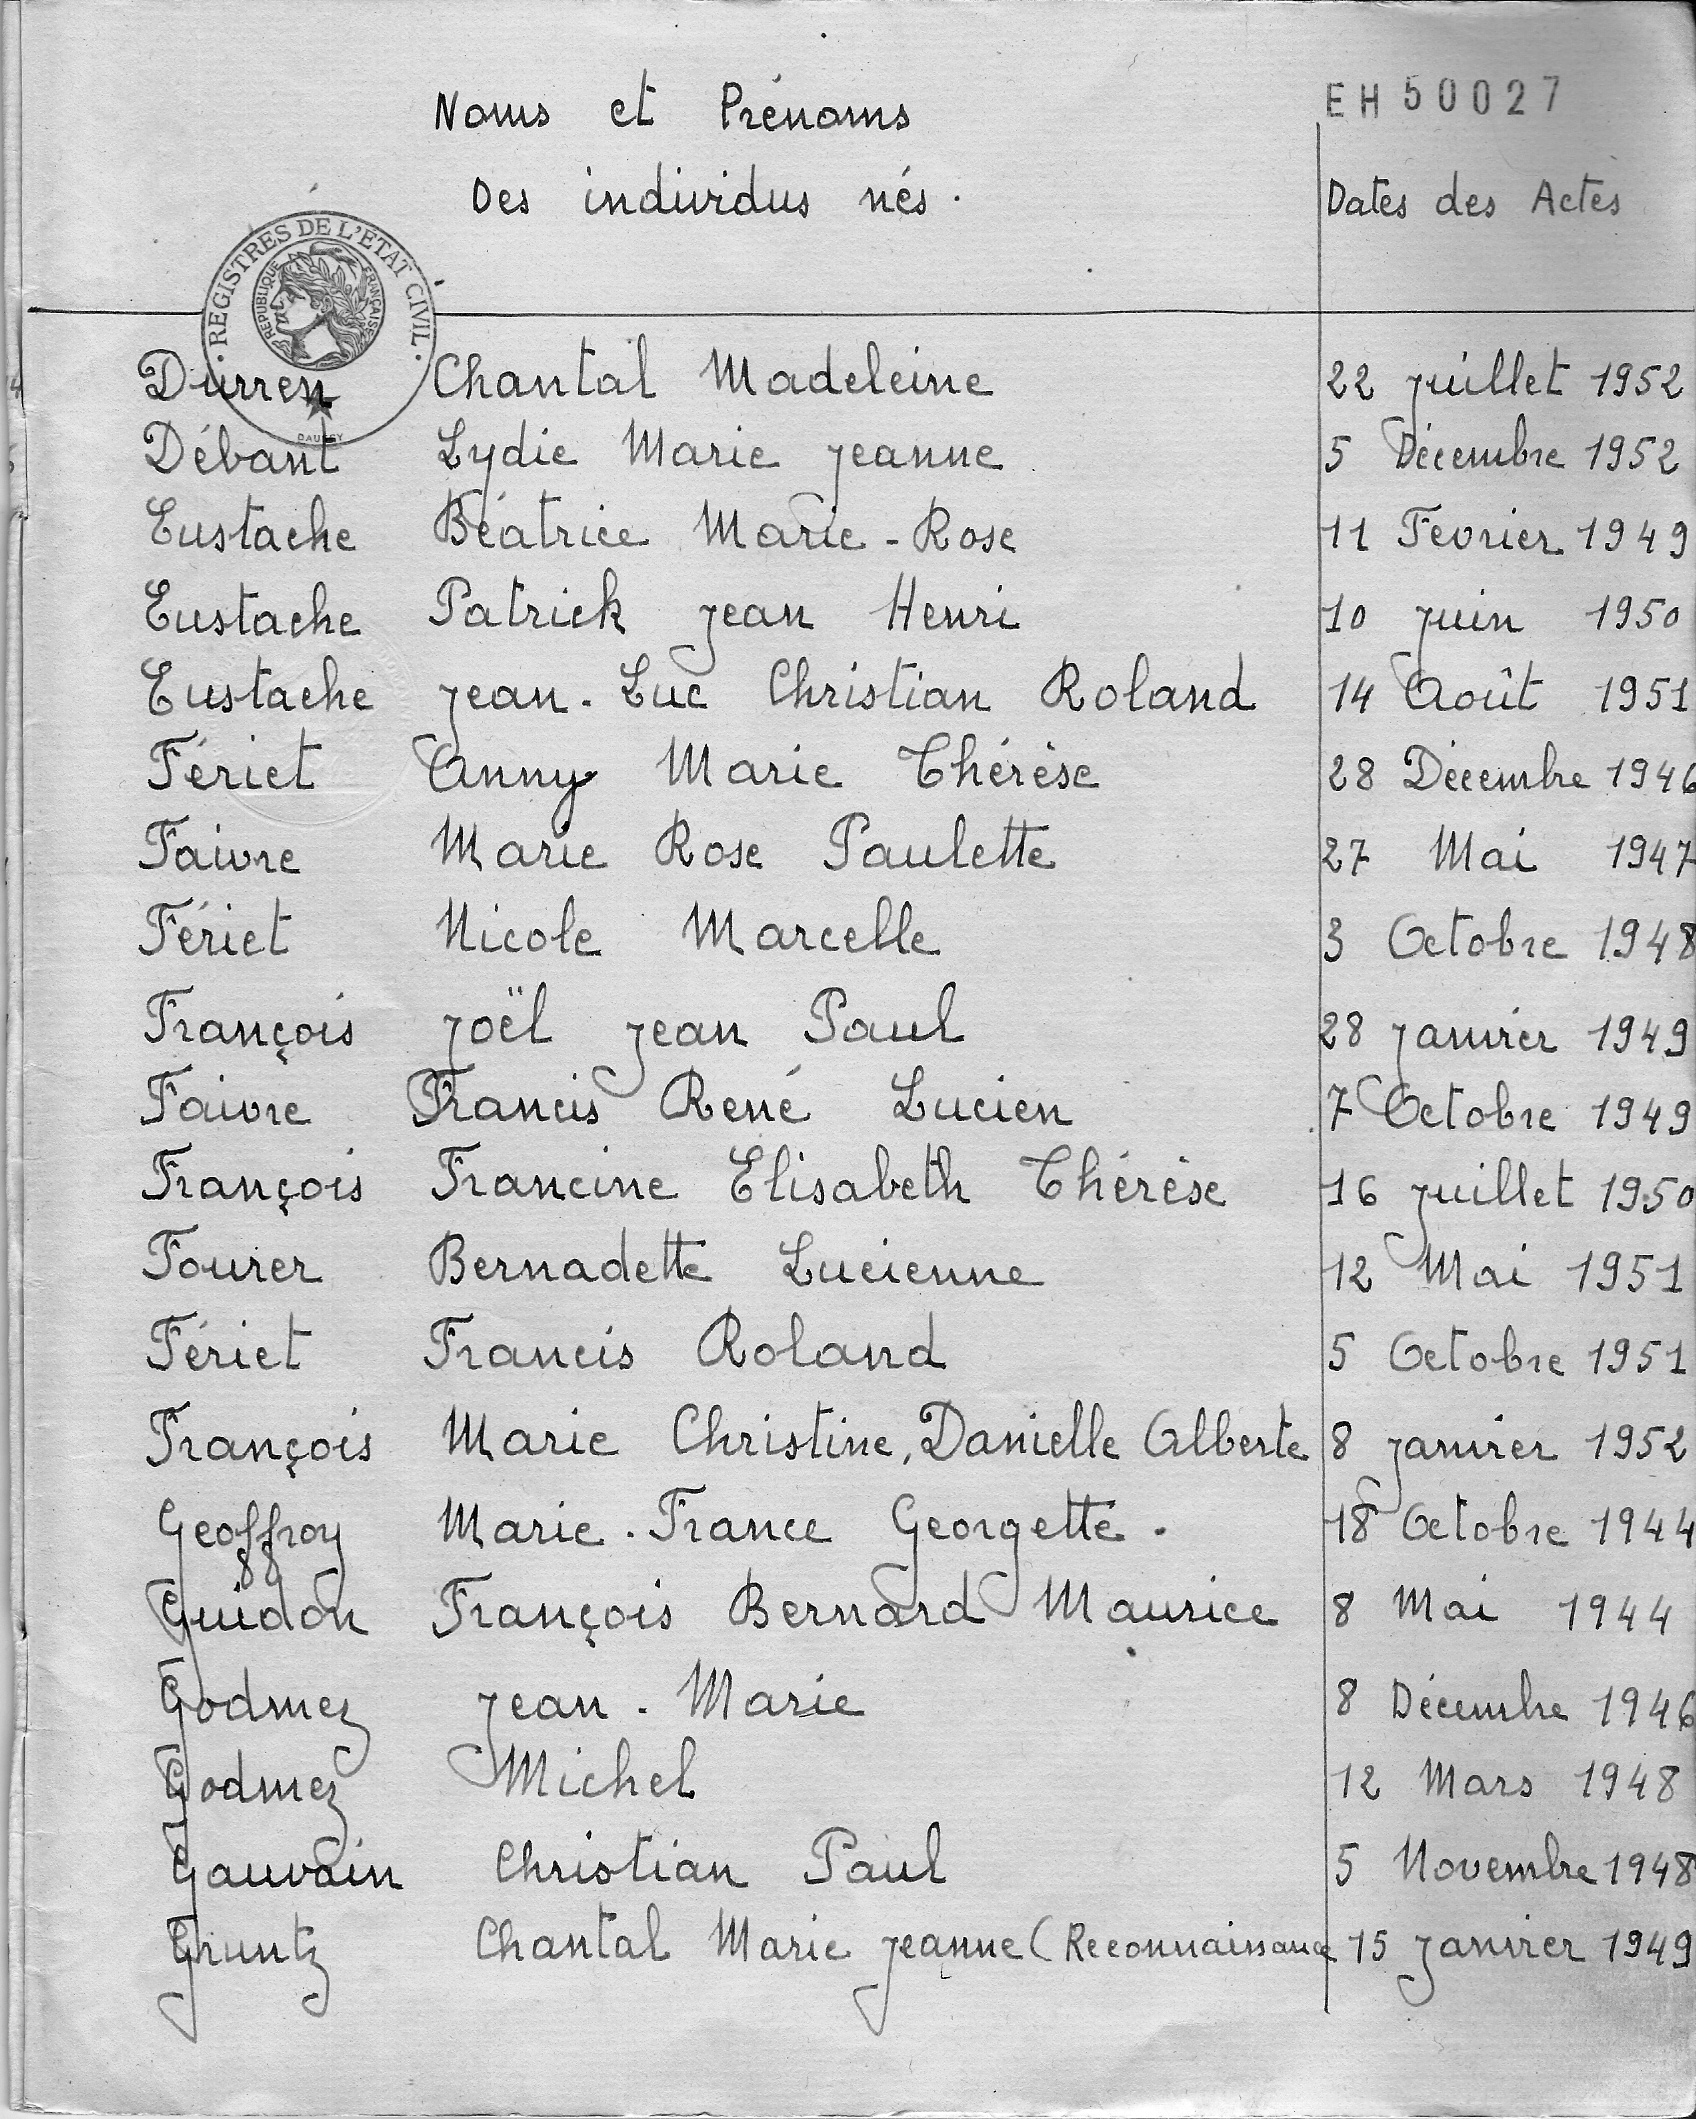 EH 50027
Noms et Prénoms
Des individus nés.
Dates des Actes
REGISTRES DE L'ETAT CIVIL
REPUBLIQUE FRANÇAISE
Durren Chantal Madeleine 22 juillet 1952
Débant Lydie Marie jeanne 5 Décembre 1952
Eustache Béatrice Marie-Rose 11 Février 1949
Eustache Patrick jean Henri 10 juin 1950
Eustache jean-Luc Christian Roland 14 Août 1951
Fériet Anny Marie Thérèse 28 Décembre 1946
Faivre Marie Rose Paulette 27 Mai 1947
Fériet Nicole Marcelle 3 Octobre 1948
François joël jean Paul 28 janvier 1949
Faivre Francis René Lucien 7 Octobre 1949
François Francine Elisabeth Thérèse 16 juillet 1950
Fourer Bernadette Lucienne 12 Mai 1951
Fériet Francis Roland 5 Octobre 1951
François Marie Christine, Danielle Alberte 8 janvier 1952
Geoffroy Marie-France Georgette. 18 Octobre 1944
Guidon François Bernard Maurice 8 Mai 1944
Godmez jean-Marie 8 Décembre 1946
Godmez Michel 12 Mars 1948
Gauvain Christian Paul 5 Novembre 1948
Gruntz Chantal Marie jeanne (Reconnaissance 15 janvier 1949